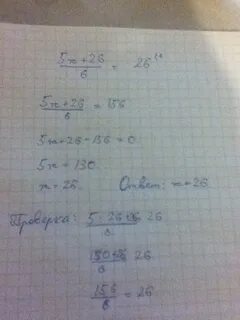 5x+26/6 = 26
5x+26/6 = 156
5x+26-156=0
5x=130
x=26. Ответ: x=26
Проверка: 5·26+26/6 26
130+26/6 26
156/6 = 26